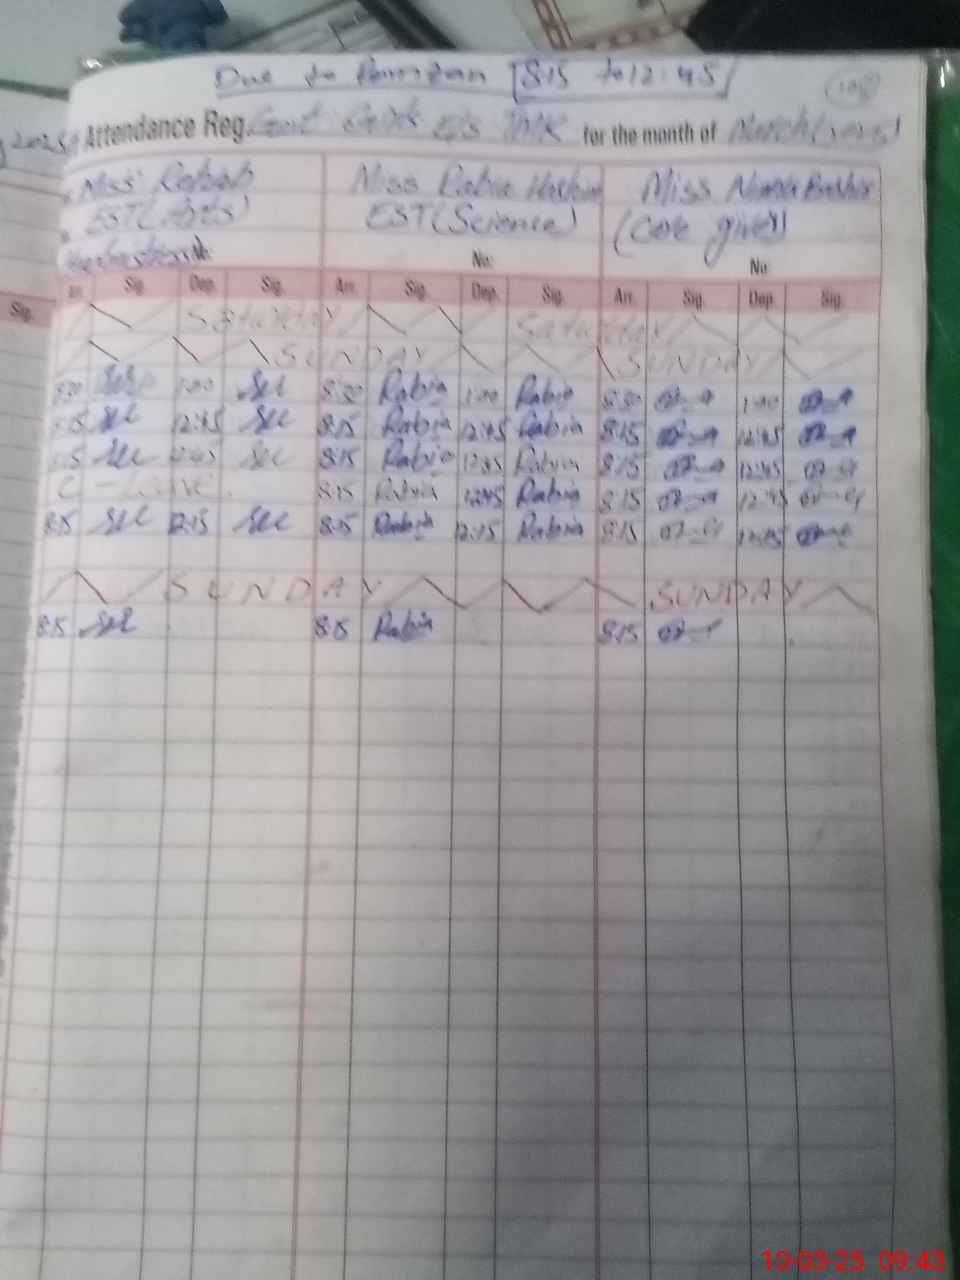 Due to Ramzan 8:15 to 12:45
Attendance Reg. Govt Girls E/S for the month of March (2025)
Miss Rabab Miss Rabia Hashim Miss Nimra Bashir
EST (Arts) EST (Science) (Care giver)
No: No: No:
Sig. Arr. Sig. Dep. Sig. Arr. Sig. Dep. Sig. Arr. Sig. Dep. Sig.
Saturday Saturday
SUNDAY SUNDAY
8:30 1:00 8:30 Rabia 1:00 Rabia 8:30 1:00
8:15 12:45 8:15 Rabia 12:45 Rabia 8:15 12:45
8:15 12:45 8:15 Rabia 12:45 Rabia 8:15 12:45
C - Leave. 8:15 Rabia 12:45 Rabia 8:15 12:45
8:15 12:15 8:15 Rabia 12:15 Rabia 8:15 12:15
SUNDAY SUNDAY
8:15 8:15 Rabia 8:15
10-03-25 09:43